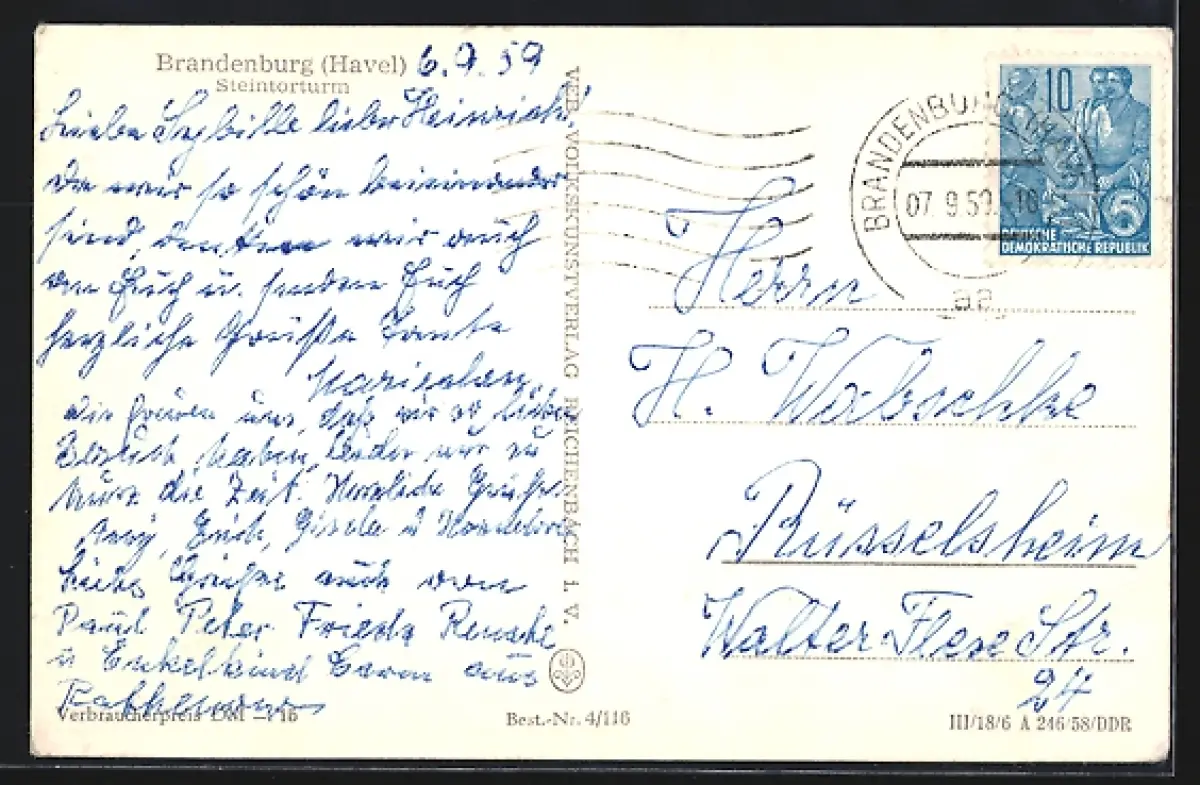 Brandenburg (Havel) 6.9.59
Steintorturm
Liebe Sybille lieber Heinrich!
Da wir so schön beieinander
sind, denken wir auch
an Euch u. senden Euch
herzliche Grüße Tante
Marie
wir freuen uns, daß wir so lieben
Besuch haben, leider nur zu
kurz die Zeit. Herzliche Grüße
Erich, Gisela u
Liebe Grüße auch von
Paul Peter Frieda Renate
u Enkelkind aus
Rathenow
VEB VOLKSKUNSTVERLAG REICHENBACH I. V.
Verbraucherpreis DM —,15
Best.-Nr. 4/116
III/18/6 A 246/58/DDR
BRANDENBURG (HAVEL)
07. 9.59.-18
aa
10
5
DEUTSCHE
DEMOKRATISCHE REPUBLIK
Herrn
H. Wabschke
Rüsselsheim
Walter-Flex Str.
24